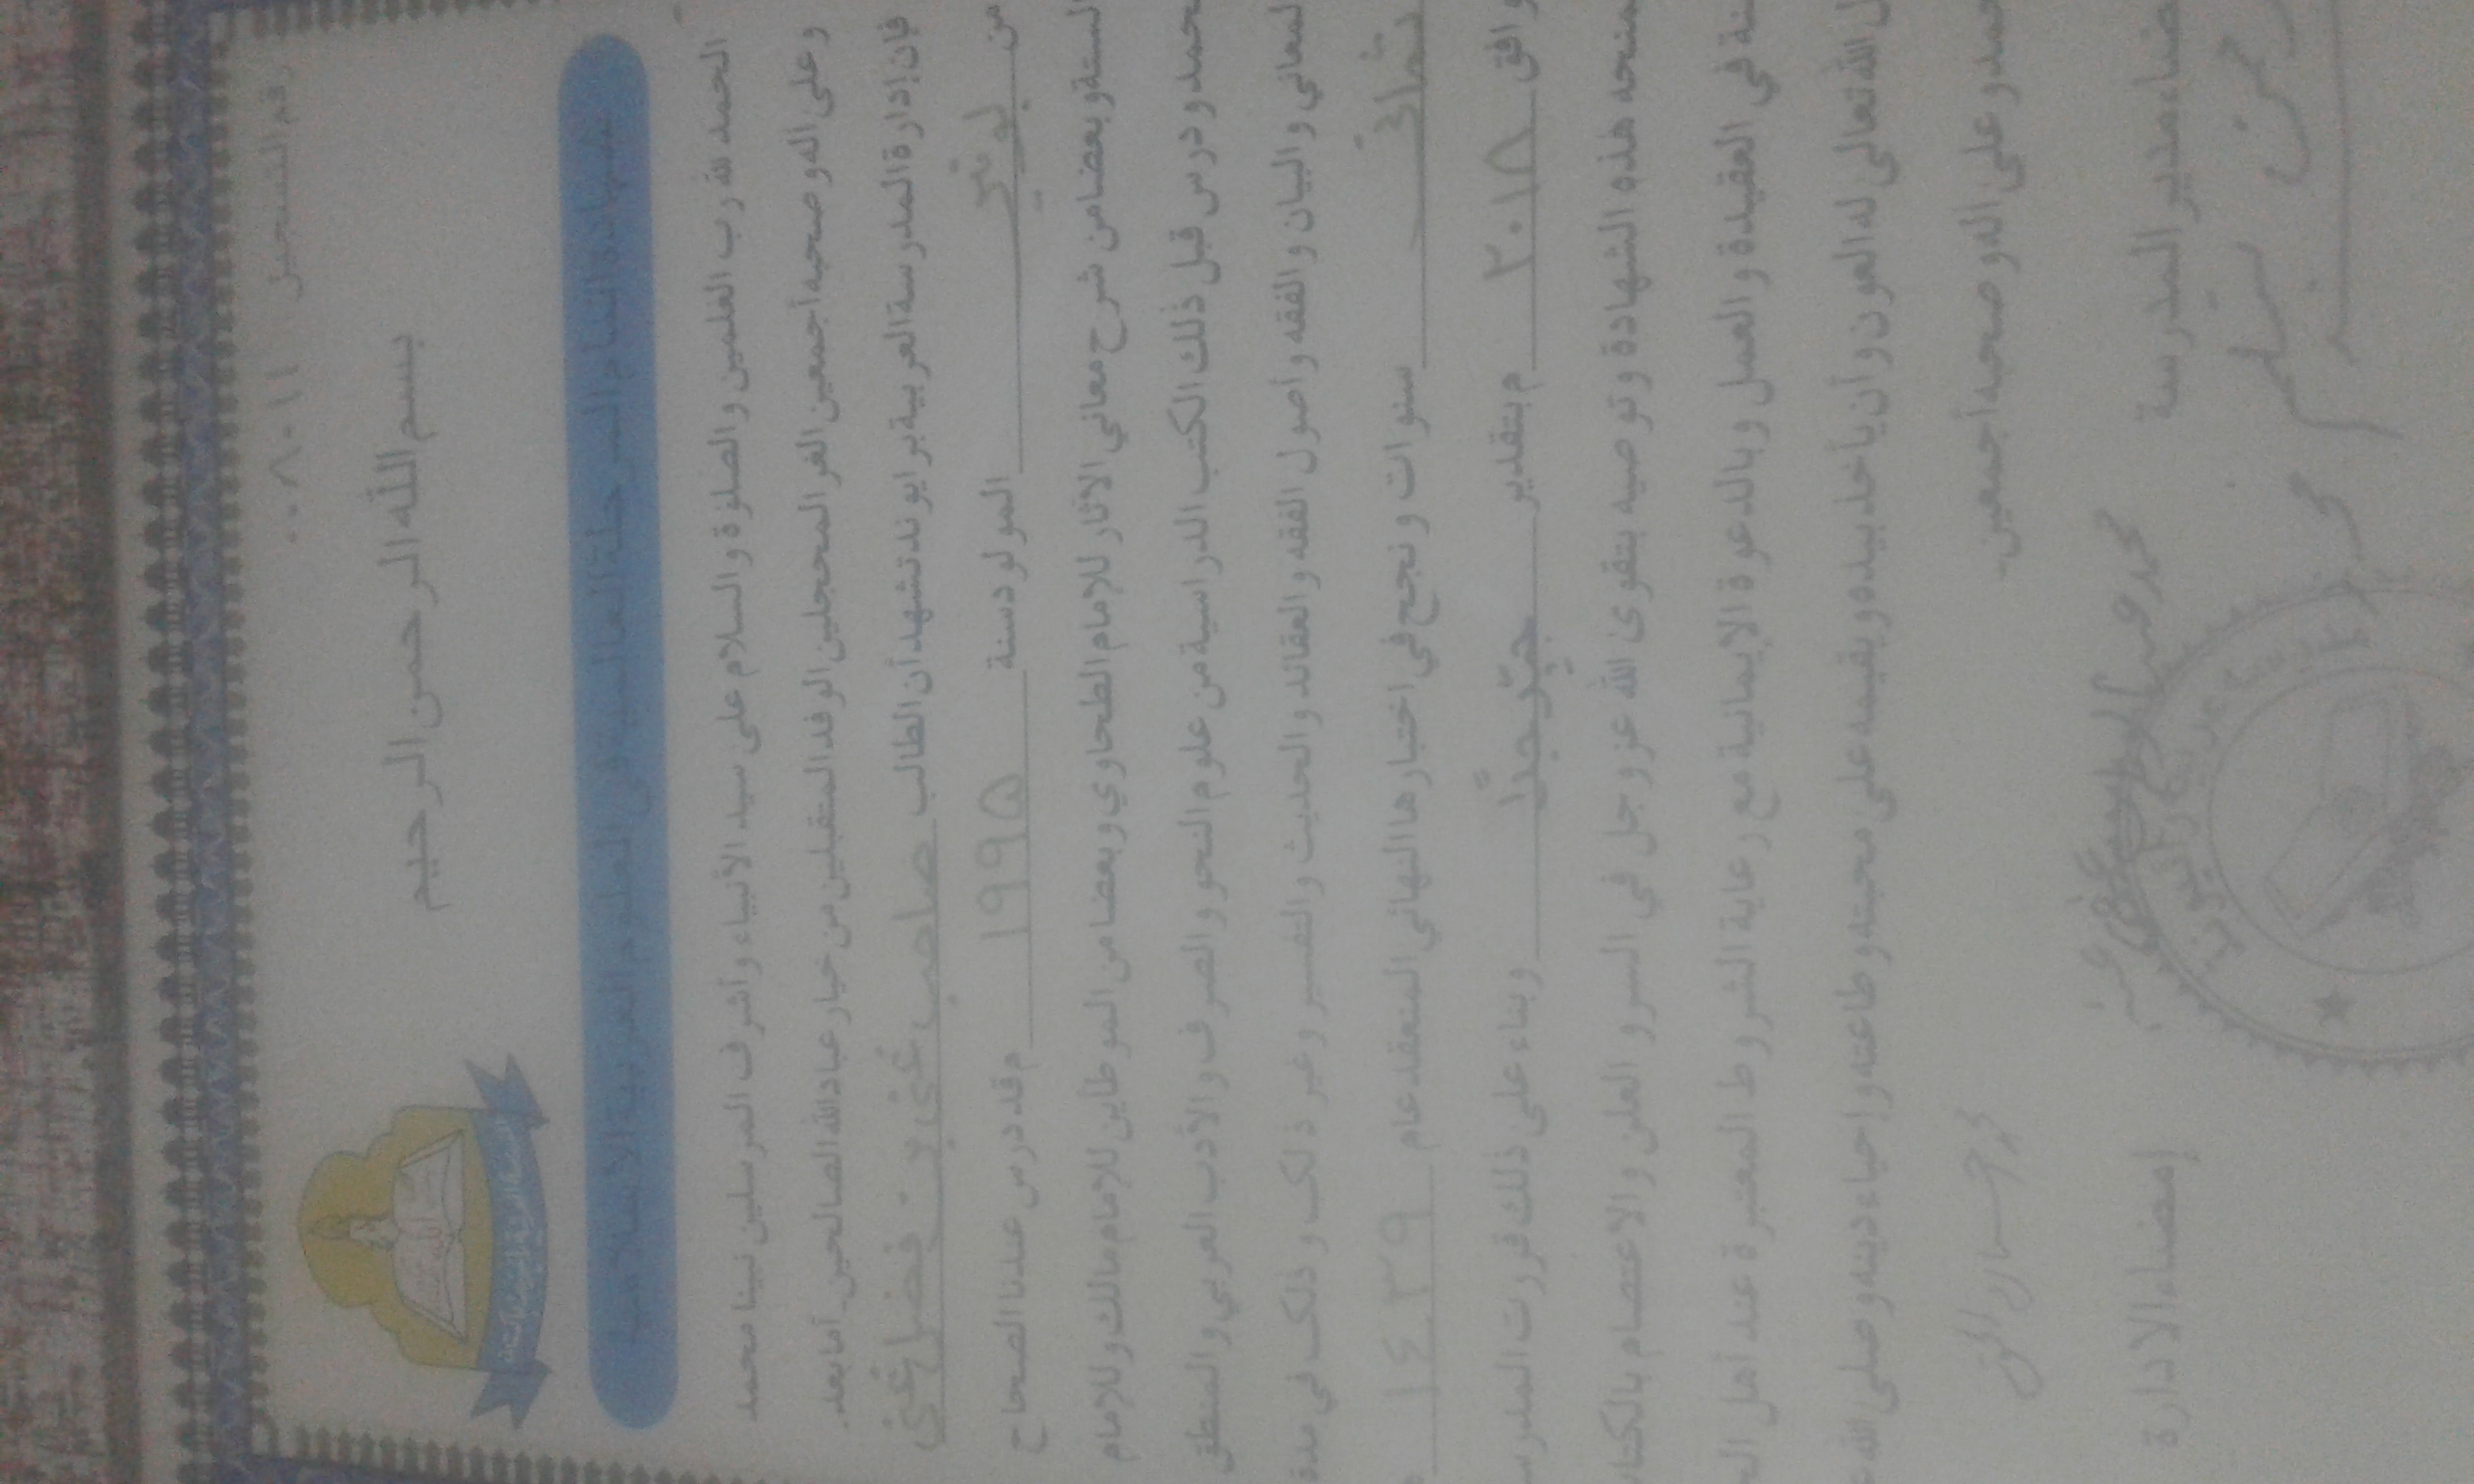 رقم التسجيل ٠٠٨٠١١
بسم الله الرحمن الرحيم
شهادة النجاح المرحلة العالمية في العلوم العربية الاسلامية
الحمد لله رب العلمين والصلوة والسلام على سيد الأنبياء وأشرف المرسلين نبينا محمد
وعلى اله وصحبه أجمعين الغر المحجلين الوفد المتقبلين من خيار عباد الله الصالحين۔ أما بعد۔
فإن إدارة المدرسة العربية برايوند تشهد أن الطالب صاحب غني بن فضل غني
من بونير المولود سنة ١٩٩٥ م قد درس عندنا الصحاح
الستة وبعضا من شرح معاني الاثار للإمام الطحاوي وبعضا من الموطأين للإمام مالك وللإمام
محمد ودرس قبل ذلك الكتب الدراسية من علوم النحو والصرف والأدب العربي والمنطق
المعاني والبيان والفقه وأصول الفقه والعقائد والحديث والتفسير وغير ذلك وذلك في مدة
ثمان سنوات ونجح في اختبارها النهائي المنعقد عام ١٤٣٩
وافق ٢٠١٨ م بتقدير جيد جدًّا وبناء على ذلك قررت المدرس
منحه هذه الشهادة وتوصيه بتقوى الله عز وجل في السر و العلن والاعتصام بالكتا
نة في العقيدة والعمل وبالدعوة الإيمانية مع رعاية الشروط المعتبرة عند أهل ال
ل الله تعالى له العون وأن يأخذ بيده ويقيمه على محبته وطاعته وإحياء دينه وصلى الله ع
حمد وعلى اله وصحبه أجمعين۔
ضاء مدير المدرسة
إمضاء الادارة